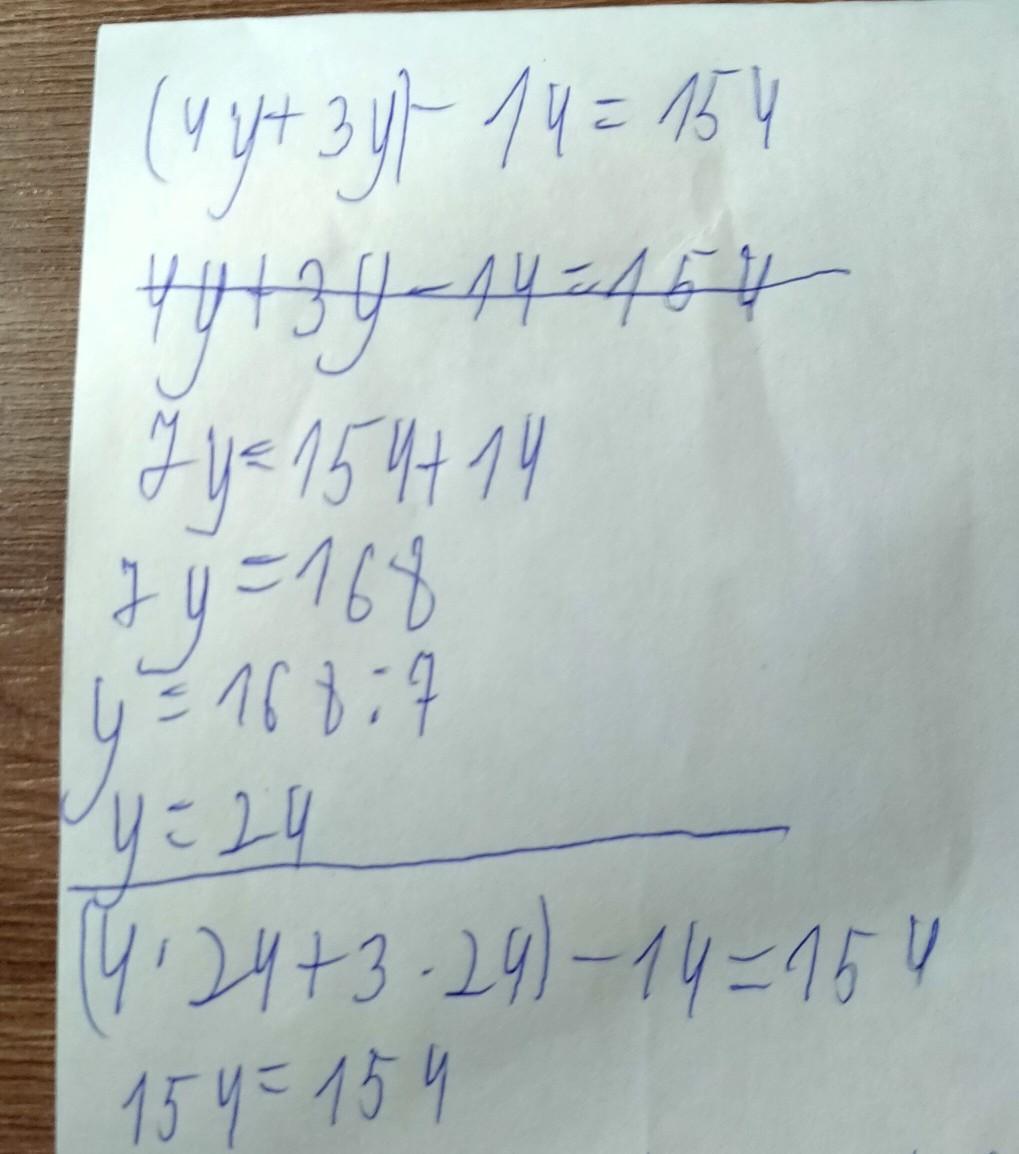 (4y+3y)-14=154
4y+3y-14=154
7y=154+14
7y=168
y=168:7
y=24
(4·24+3·24)-14=154
154=154